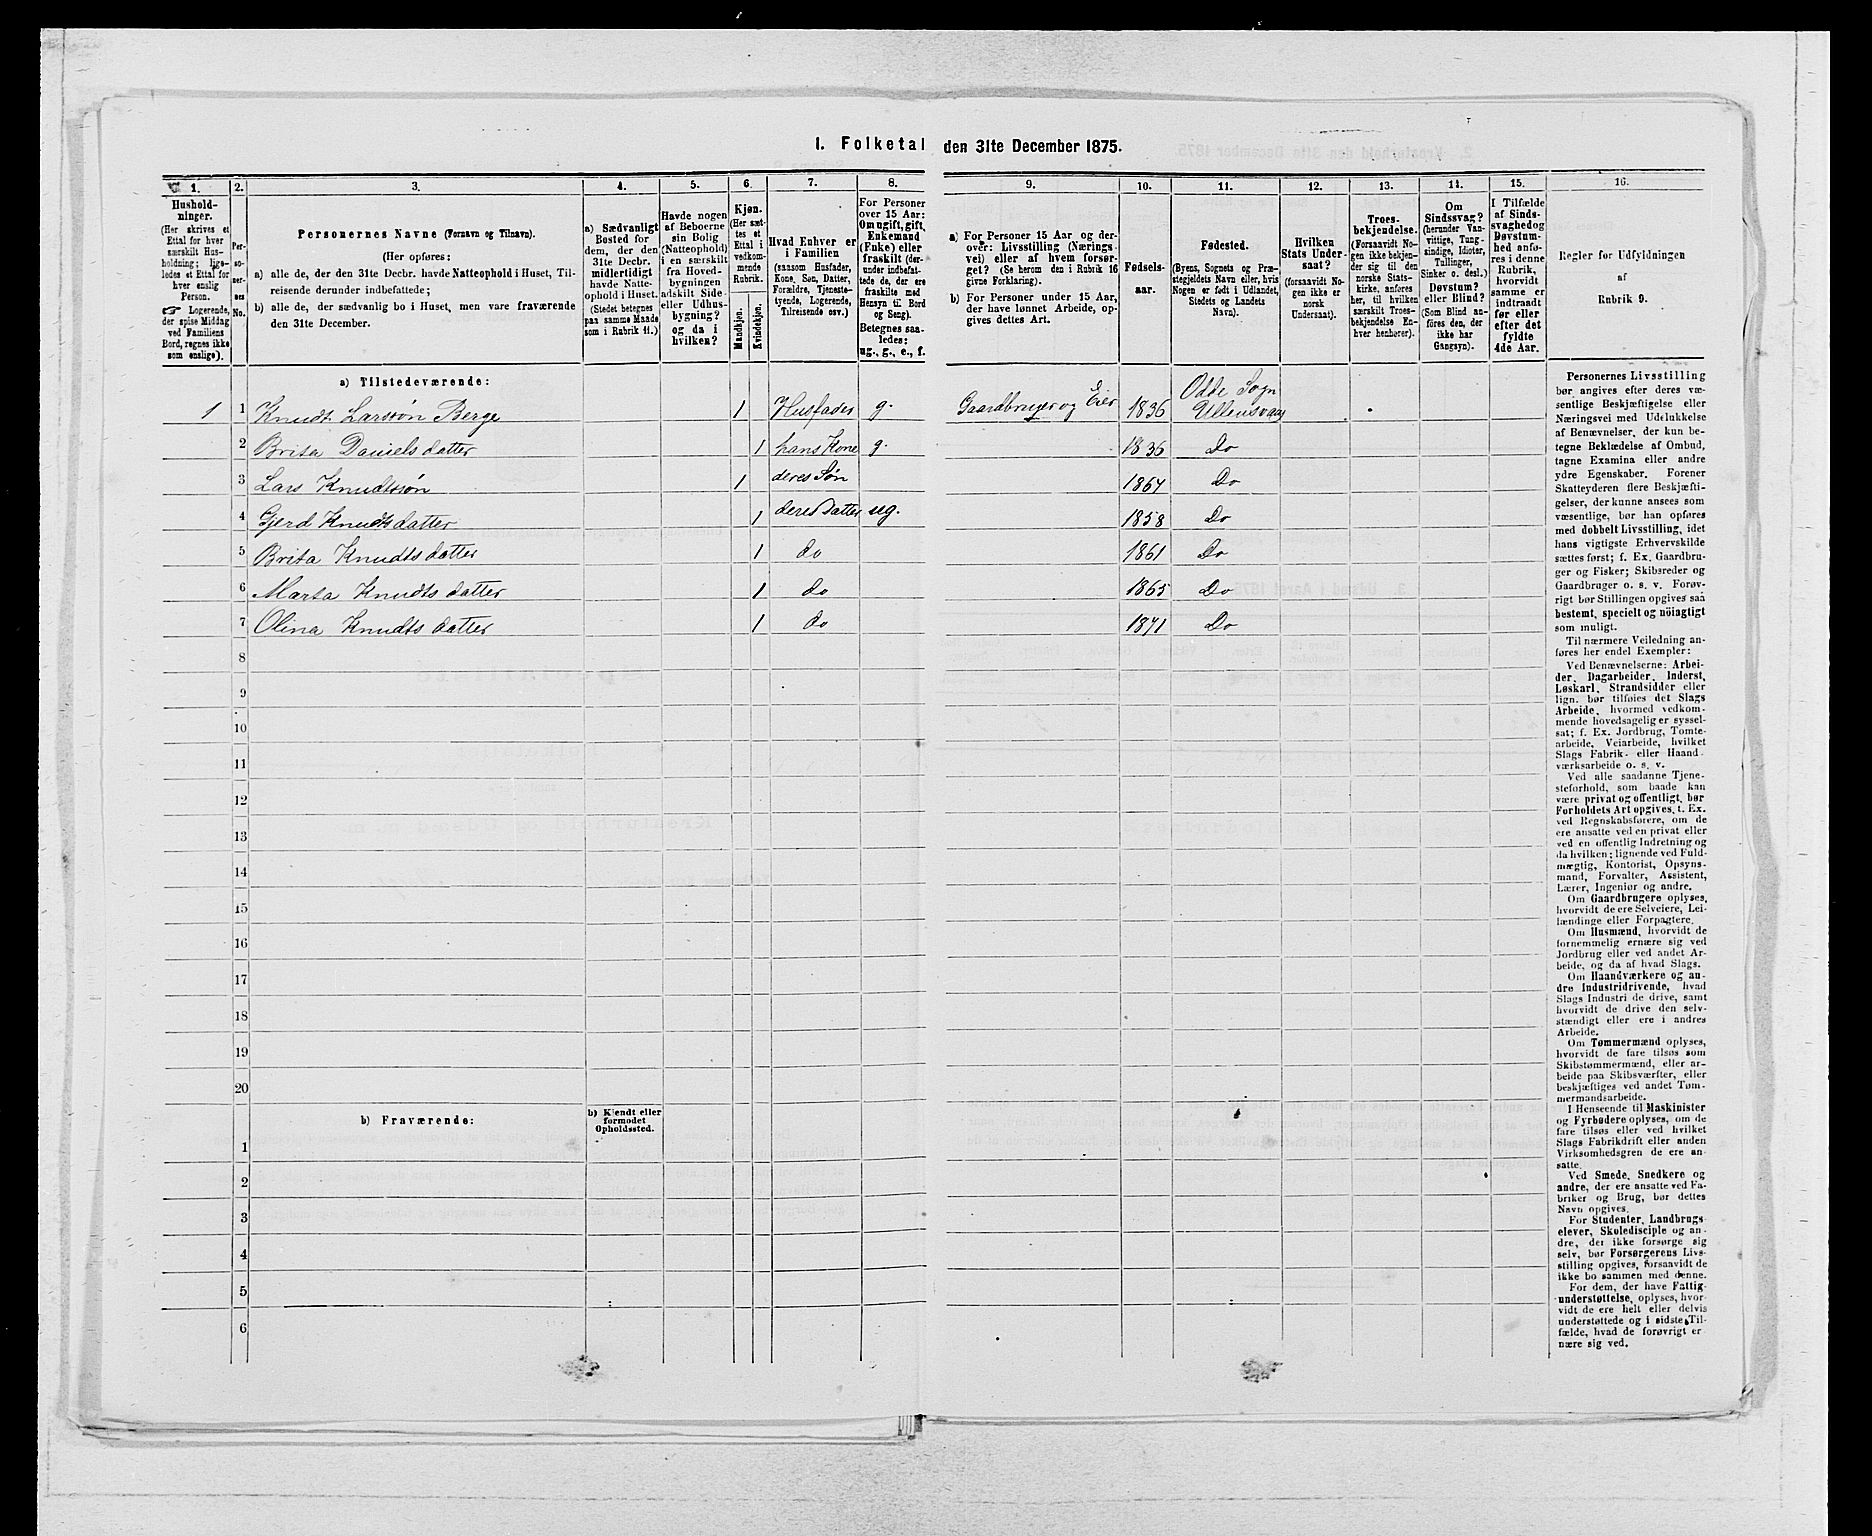 I. Folketal den 31te December 1875.
1.
2.
3.
4.
5.
6.
7.
8.
9.
10.
11.
12.
13.
14.
15.
16.
Hushold-
ninger.
(Her skrives et
Ettal for hver
særskilt Hus-
holdning; lige-
ledes et Ettal for
hver enslig
Person.
☞ Logerende,
der spise Middag
ved Familiens
Bord, regnes ikke
som enslige).
Per-
so-
ner-
nes
No.
Personernes Navne (Fornavn og Tilnavn).
(Her opføres:
a) alle de, der den 31te Decbr. havde Natteophold i Huset, Til-
reisende derunder indbefattede;
b) alle de, der sædvanlig bo i Huset, men vare fraværende
den 31te December.
a) Sædvanligt
Bosted for
dem, der den
31te Decbr.
midlertidigt
havde Natte-
ophold i Huset.
(Stedet betegnes
paa samme Maade
som i Rubrik 11.)
Havde nogen
af Beboerne
sin Bolig
(Natteophold)
i en særskilt
fra Hoved-
bygningen
adskilt Side-
eller Udhus-
bygning?
og da i
hvilken?
Kjøn.
(Her sæt-
tes et
Ettal i
vedkom-
mende
Rubrik.
Mandkjøn.
Kvindekjøn.
Hvad Enhver er
i Familien
(saasom Husfader,
Kone, Søn, Datter,
Forældre, Tjeneste-
tyende, Logerende,
Tilreisende osv.)
For Personer
over 15 Aar:
Om ugift, gift,
Enkemand
(Enke) eller
fraskilt (der-
under indbefat-
tede de, der ere
fraskilte med
Hensyn til Bord
og Seng).
Betegnes saa-
ledes:
ug., g., e., f.
a) For Personer 15 Aar og der-
over: Livsstilling (Nærings-
vei) eller af hvem forsør-
get? (Se herom den i Rubrik 16
givne Forklaring).
b) For Personer under 15 Aar,
der have lønnet Arbeide, op-
gives dettes Art.
Fødsels-
aar.
Fødested.
(Byens, Sognets og Præ-
stegjeldets Navn eller, hvis
Nogen er født i Udlandet,
Stedets og Landets
Navn).
Hvilken
Stats Under-
saat?
(forsaavidt No-
gen ikke er
norsk
Undersaat).
Troes-
bekjendelse.
(Forsaavidt No-
gen ikke bekjen-
der sig til den
norske Stats-
kirke, anføres
her, til hvilken
særskilt Troes-
bekjendelse En-
hver henhører).
Om
Sindssvag?
(herunder Van-
vittige, Tung-
sindige, Idioter,
Tullinger,
Sinker o. desl.)
Døvstum?
eller Blind?
(Som Blind an-
føres den, der
ikke har
Gangsyn).
I Tilfælde
af Sinds-
svaghedog
Døvstum-
hed anfø-
res i denne
Rubrik,
hvorvidt
samme er
indtraadt
før eller
efter det
fyldte
4de Aar.
Regler for Udfyldningen
af
Rubrik 9.
a) Tilstedeværende:
1 1 Knudt Larssøn Berge 1 Husfader g. Gaardbruger og Eier 1836 Odde Sogn Ullensvang
2 Brita Daniels datter 1 hans Kone g. 1836 Do
3 Lars Knudtssøn 1 deres Søn 1867 Do
4 Gjerd Knudts datter 1 deres datter ug. 1858 Do
5 Brita Knudts datter 1 do 1861 Do
6 Marta Knudts datter 1 do 1865 Do
7 Olina Knudts datter 1 do 1871 Do
8
9
10
11
12
13
14
15
16
17
18
19
20
b) Fraværende:
b) Kjendt eller
formodet
Opholdssted.
1
2
3
4
5
6
Personernes Livsstilling
bør angives efter deres væ-
sentlige Beskjæftigelse eller
Næringsvei med Udelukkelse
af Benævnelser, der kun be-
tegne Beklædelse af Ombud,
tagne Examina eller andre
ydre Egenskaber. Forener
Skatteyderen flere Beskjæfti-
gelser, der kunne ansees som
væsentlige, bør han opføres
med dobbelt Livsstilling, idet
hans vigtigste Erhvervskilde
sættes først; f. Ex. Gaardbru-
ger og Fisker; Skibsreder og
Gaardbruger o. s. v. Forøv-
rigt bør Stillingen opgives saa
bestemt, specielt og nöiagtigt
som muligt.
Til nærmere Veiledning an-
føres her endel Exempler:
Ved Benævnelserne: Arbei-
der, Dagarbeider, Inderst,
Løskarl, Strandsidder eller
lign. bør tilføies det Slags
Arbeide, hvormed vedkom-
mende hovedsagelig er syssel-
sat; f. Ex. Jordbrug, Tomte-
arbeide, Veiarbeide, hvilket
Slags Fabrik- eller Haand-
værksarbeide o. s. v.
Ved alle saadanne Tjene-
steforhold, som baade kan
være privat og offentligt, bør
Forholdets Art opgives, t. Ex.
ved Regnskabsførere, om de
ere ansatte ved en privat eller
ved en offentlig Indretning og
da hvilken; lignende ved Fuld-
mægtig, Kontorist, Opsyns-
mand, Forvalter, Assistent,
Lærer, Ingeniør og andre.
Om Gaardbrugere oplyses,
hvorvidt de ere Selveiere, Lei-
lændinge eller Forpagtere.
Om Husmænd, hvorvidt de
fornemmelig ernære sig ved
Jordbrug eller ved andet Ar-
beide, og da af hvad Slags.
Om Haandværkere og an-
dre Industridrivende, hvad
Slags Industri de drive, samt
hvorvidt de drive den selv-
stændigt eller ere i andres
Arbeide.
Om Tømmermænd oplyses,
hvorvidt de fare tilsøs som
Skibstømmermænd, eller ar-
beide paa Skibsværfter, eller
beskjæftiges ved andet Tøm-
mermandsarbeide.
I Henseende til Maskinister
og Fyrbødere oplyses, om de
fare tilsøs eller ved hvilket
Slags Fabrikdrift eller anden
Virksomhedsgren de ere an-
satte.
Ved Smede, Snedkere og
andre, der ere ansatte ved Fa-
briker og Brug, bør dettes
Navn opgives.
For Studenter, Landbrugs-
elever, Skoledisciple og an-
dre, der ikke forsørge sig
selv, bør Forsørgerens Livs-
stilling opgives, forsaavidt de
ikke bo sammen med denne.
For dem, der have Fattig-
understøttelse, oplyses, hvor-
vidt de ere helt eller delvis
understøttede og i sidste Til-
fælde, hvad de forøvrigt er-
nære sig ved.